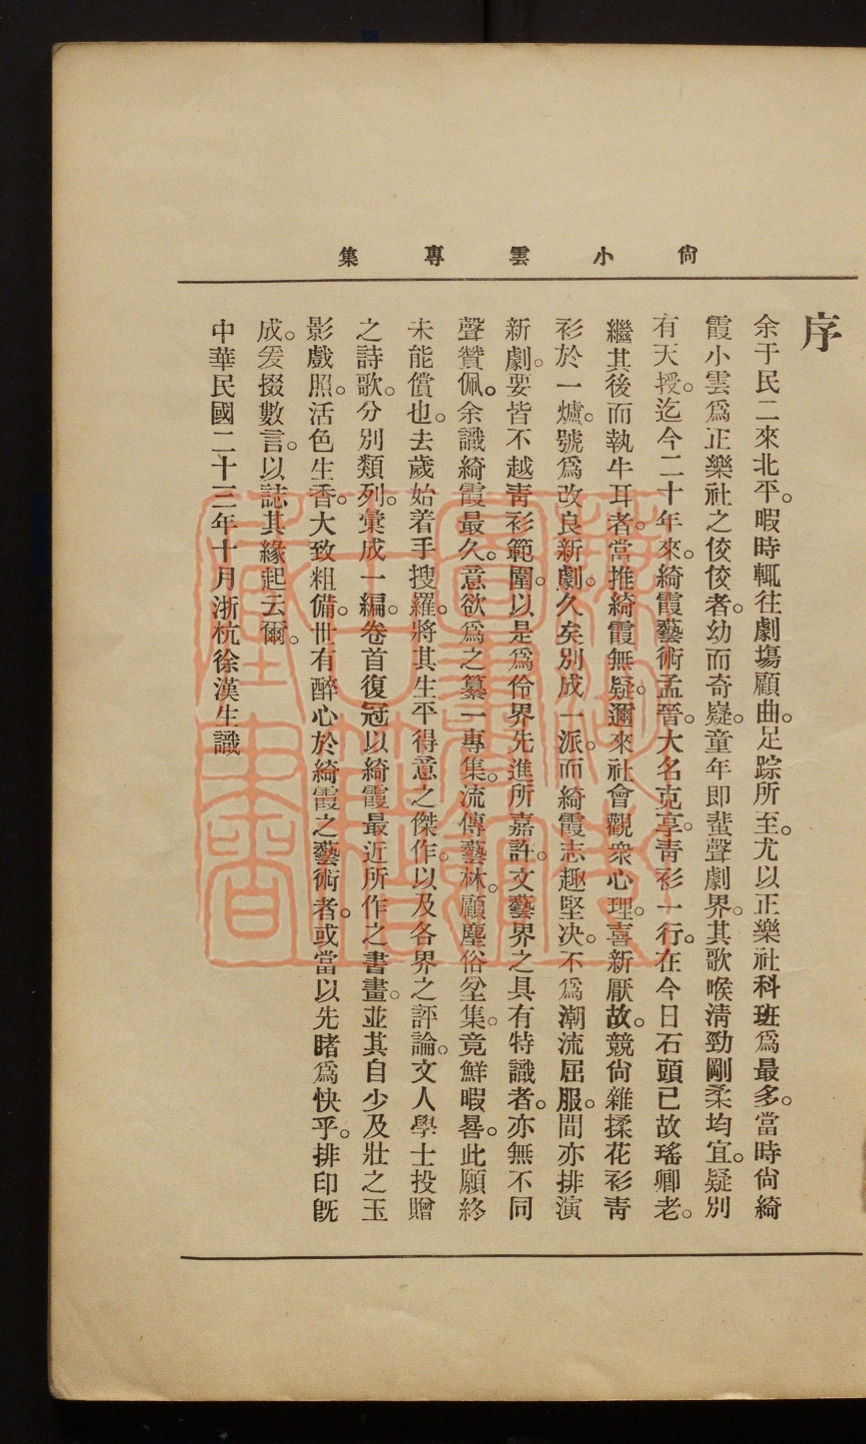 尙小雲專集
序
余于民二來北平。暇時輒往劇塲顧曲。足踪所至。尤以正樂社科班爲最多。當時尙綺
霞小雲爲正樂社之佼佼者。幼而奇嶷。童年即蜚聲劇界。其歌喉淸勁剛柔均宜。疑別
有天授。迄今二十年來。綺霞藝術孟晉。大名克享。靑衫一行。在今日石頭已故瑤卿老。
繼其後而執牛耳者。當推綺霞無疑。邇來社會觀衆心理。喜新厭故。競尙雜揉花衫靑
衫於一爐。號爲改良新劇。久矣別成一派。而綺霞志趣堅決。不爲潮流屈服。間亦排演
新劇。要皆不越靑衫範圍。以是爲伶界先進所嘉許。文藝界之具有特識者。亦無不同
聲贊佩。余識綺霞最久。意欲爲之纂一專集。流傳藝林。顧塵俗坌集。竟鮮暇晷。此願終
未能償也。去歲始着手搜羅。將其生平得意之傑作。以及各界之評論。文人學士投贈
之詩歌。分別類列。彙成一編。卷首復冠以綺霞最近所作之書畫。並其自少及壯之玉
影戲照。活色生香。大致粗備。世有醉心於綺霞之藝術者。或當以先睹爲快乎。排印旣
成。爰掇數言。以誌其緣起云爾。
中華民國二十三年十月浙杭徐漢生識